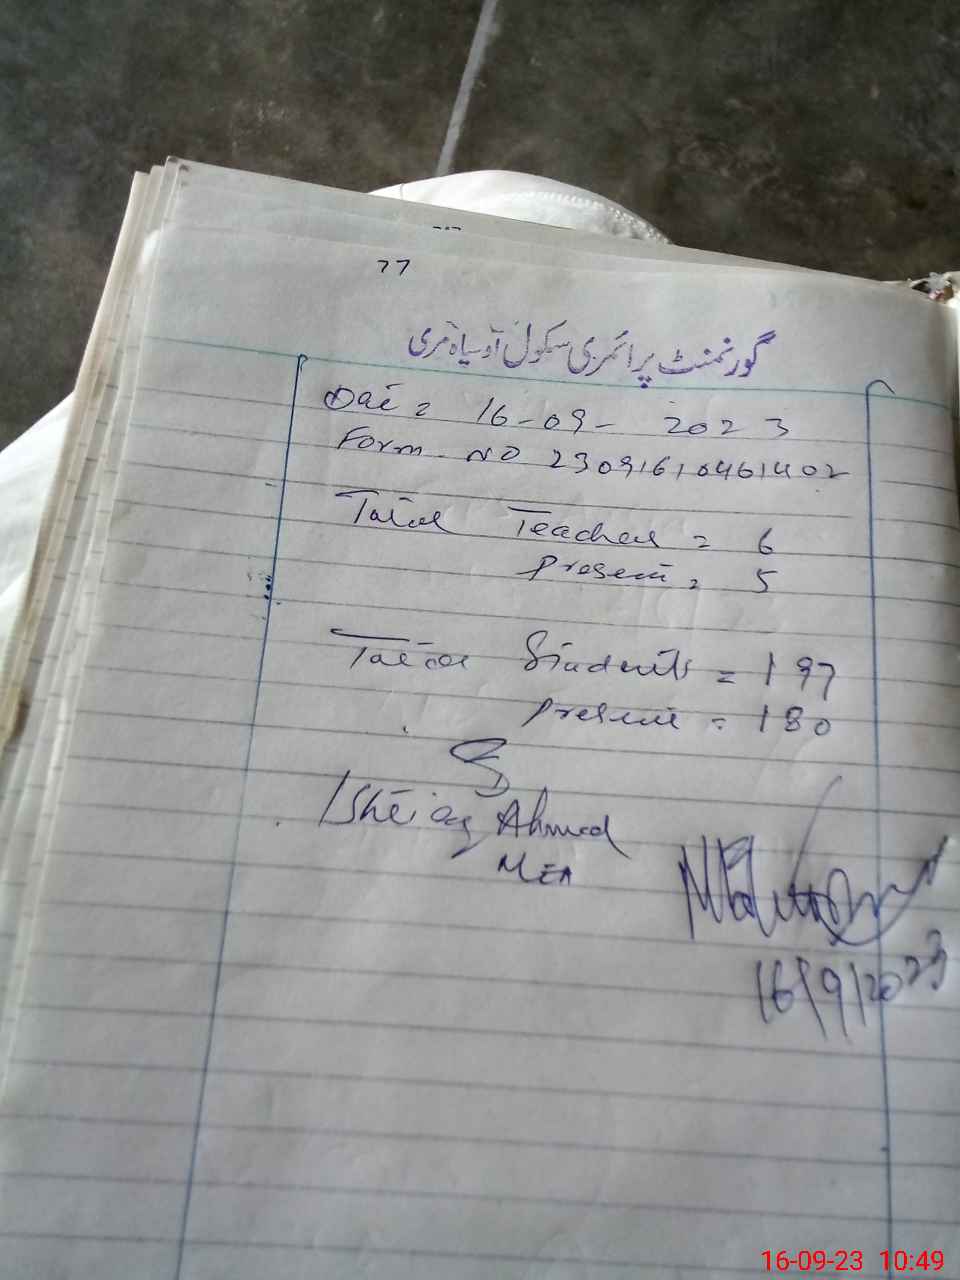 77
گورنمنٹ پرائمری سکول اوسیاہ مری
Date = 16-09-2023
Form NO 23091610461402
Total Teacher = 6
Present = 5
Total Students = 197
Present = 180
Ishtiaq Ahmed
MEA
16/9/2023
16-09-23 10:49